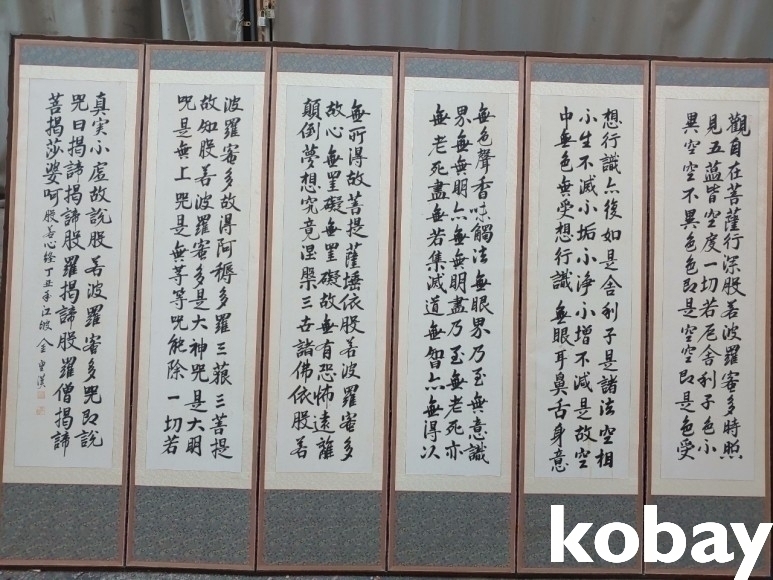 觀自在菩薩行深股若波羅蜜多時照
見五蓝皆空度一切若厄舍利子色小
異空空不異色色即是空空即是色受
想行識亦後如是舍利子是諸法空相
小生不减小垢小净小增不減是故空
中無色無受想行識無眼耳鼻舌身意
無色聲香味觸法無眼界乃至無意識
界無無明亦無無明盡乃至無老死亦
無老死盡無若集滅道無智亦無得以
無所得故菩提薩埵依股若波羅蜜多
故心無罣礙無罣礙故無有恐怖遠離
顛倒夢想究竟涅槃三世諸佛依股若
波羅蜜多故得阿耨多羅三藐三菩提
故知股若波羅蜜多是大神咒是大明
咒是無上咒是無等等咒能除一切若
真实小虛故說股若波羅蜜多咒即說
咒曰揭諦揭諦股羅揭諦股羅僧揭諦
菩揭莎婆呵 股若心経丁丑年江坡金
kobay